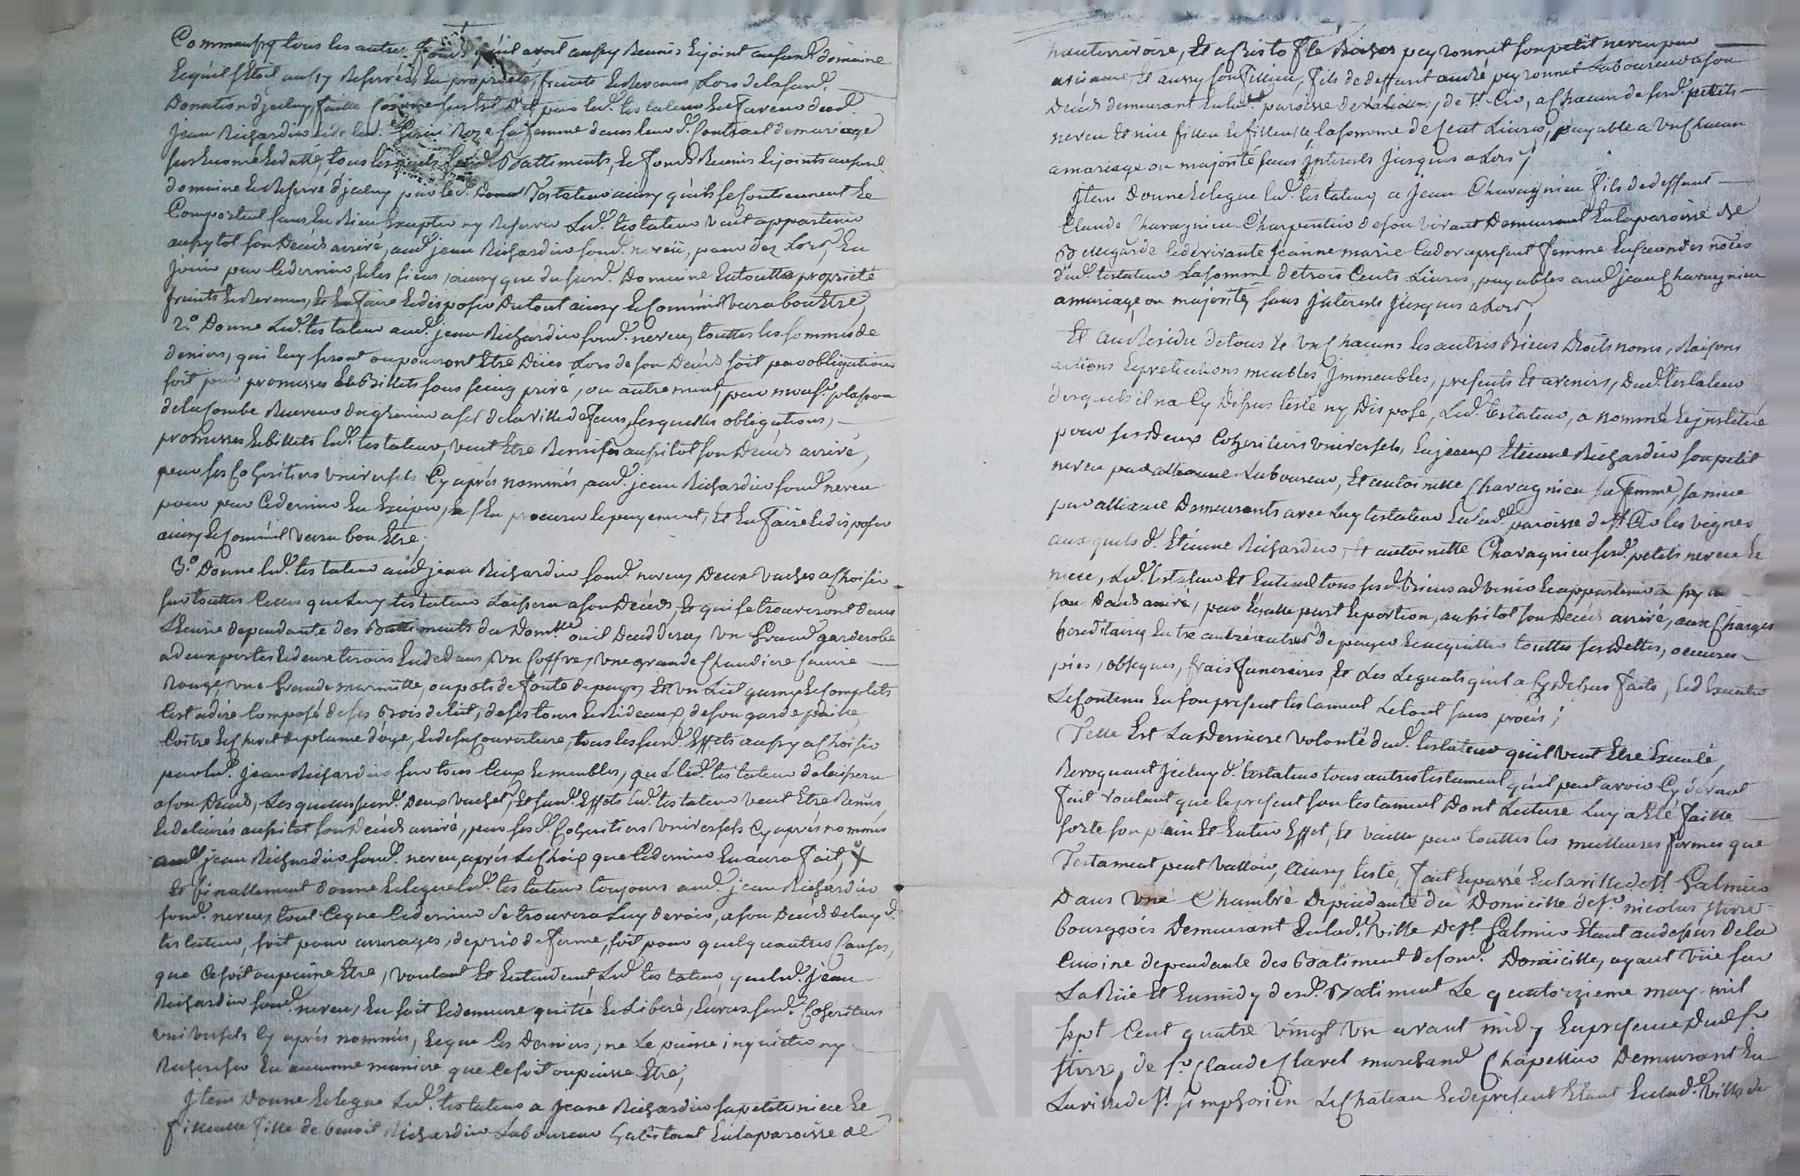 Comme aussy tous les autres fonds qu'il avoit aussy Reunis Et joint aud. Domaine
Et qu'il s'étoit aussy Reservés En proprieté, fruits Et Revenus, Lors de la sud.
Donation d'jceluy, faitte par led. testateur En faveur dud.
jean Richardin Et de lad. Roze sa femme dans leur d. Contract de mariage
sus Enoncé Et datté, tous lesquels sud. Battiments, Et fonds Reunis Et joints aud.
domaine Et Reservé d'jceluy par led. testateur ainsy qu'ils se Contiennent Et
Comportent sans En Rien Excepter ny Reserver Led. testateur veut appartenir
aussytot son Decés arrivé, aud. jean Richardin sond. neveu, pour dez Lors, En
jouir par Ce dernier, ainsy que du sud. Domaine En toutte proprieté
fruits Et Revenus, Et En faire Et disposer Du tout ainsy Et Comme il verra bon Etre,
2.° Donne Led. testateur aud. jean Richardin sond. neveu, touttes les sommes de
deniers, qui luy seront ou pourront Etre Düies Lors de son Decés soit par obligations
soit par promesses Et Billets sous seing privé, ou autrement, par mons.
de la Combe de la ville de feurs, Lesquelles obligations,
promesses Et billets led. testateur, veut Etre Remises aussitot son Decés arrivé,
par ses Cohéritiers universels Cy après nommés, aud. jean Richardin sond. neveu
pour par Ce dernier En Exiger, Et s'En procurer le payement, Et En faire Et disposer
ainsy Et Comme il verra bon Etre,
3.° Donne led. testateur aud. jean Richardin sond. neveu Deux vaches a Choisir
sur touttes Celles que Luy testateur Laissera a son Decés, Et qui se trouveront dans
L'Ecurie dependante des Battiments du Dom.lle ou il Decedera, un Grand garderobe
a deux portes Et deux tiroirs En dedans, un Coffre, une grande Chaudiere Cuivre
Rouge, une Grande marmitte, ou pots de fonte de pays, Et un Lict garny Et Complet
C'est a dire Composé de ses bois de lict, de ses tours Et Rideaux de son garde paille,
Coitre Et Chevet de plume d'oye, Et de sa Couverture, tous les sud. Effets aussy a Choisir
par led. jean Richardin sur tous Ceux Et meubles, que led. testateur delaissera
a son Decés, Lesquels sud. Deux vaches, Et sud. Effets led. testateur veut Etre Remis,
Et delivrés aussitot son Decés arrivé, par ses d. Cohéritiers universels Cy après nommés
aud. jean Richardin sond. neveu après Le Choix que Ce dernier En aura fait,
Et finallement donne Et Legue led. testateur toujours aud. jean Richardin
sond. neveu, tout Ce que Ce dernier se trouvera Luy devoir, a son Decés de luy d.
testateur, soit pour arrerages, de prix de ferme, soit pour quelqu'autres Causes,
que Ce soit ou puisse Etre, voulant Et Entendant Led. testateur, que led. jean
Richardin sond. neveu, En soit Et demeure quitte Et Liberé, Envers sesd. Cohéritiers
universels Cy après nommés, Et que Ces Derniers, ne Le puisse inquietter ny
Rechercher En aucunne maniere que Ce soit ou puisse Etre,
Jtem Donne Et Legue Led. testateur a Jeane Richardin sa petite niece Et
filleulle fille de benoit Richardin Laboureur habitant En la paroisse de
hauterivoire, Et a peyronnet son petit neveu par
aliance, Et aussy son filleul, fils de deffunt andré peyronnet Laboureur a son
Decés demeurant En lad. paroisse de de S.t Cir, a Chacun de sesd. petits
neveu Et niece filleul Et filleulle la somme de Cent Livres, payable a un Chacun
a mariage ou majorité sans jnterests jusques alors,
Jtem Donne Et Legue led. testateur a Jean Chavagnieu fils de deffunt
Claude Chavagnieu Charpentier de son vivant Demeurant En la paroisse de
Bellegarde Et de vivante Jeanne marie Cador a present femme En secondes noces
dud. testateur La somme de trois Cents Livres, payables aud. jean Chavagnieu
a mariage, ou majorité, sans jnterests jusques alors,
Et au Residu de tous Et un Chacuns les autres Biens Droits noms, Raisons
actions Et pretentions meubles Jmmeubles, presents Et avenirs, Dud. testateur
desquels il n'a Cy dessus testé ny Disposé, Led. testateur, a nommé Et jnstitué
pour ses Deux Cohéritiers universels, Etienne Richardin son petit
neveu Laboureur, Et antoinette Chavagnieu sa femme, sa niece
par alliance Demeurants avec Luy testateur En lad. paroisse de S.t Cir les vignes
auxquels d. Etienne Richardin, Et antoinette Chavagnieu sesd. petits neveu Et
niece, Led. testateur Et Entend tous ses d. biens advenir Et appartenir
son Decés arrivé, par Egalle part Et portion, aussitot son Decés arrivé, aux Charges
hereditaires Entre autres de payer Et acquitter touttes ses dettes, oeuvres
pies, obseques, frais funeraires Et Les Leguats qu'il a Cy dessus faits, Et d'Executer
Le Contenu En son present testament Le tout sans procés;
Telle Est La Derniere volonté dud. testateur qu'il veut Etre Executé,
Revoquant Jceluy d. testateur tous autres testament qu'il peut avoir Cy devant
fait voulant que le present son testament Dont Lecture Luy a Eté faitte
sorte son plain Et Entier Effet, Et vaille par touttes les meilleures formes que
Testament peut valloir, Ainsy testé, fait Et passé En la ville de S.t Galmier
Dans une Chambre Dependante du Domicille de s.r nicolas
bourgeois Demeurant En lad. ville de S.t Galmier Etant au dessus de la
Cuisine dependante des Batiment de sond. Domicille, ayant vüe sur
La Rüe Et En midy desd. Batiment Le quatorzieme may mil
sept Cent quatre vingt un avant midy En presence dud. s.r
de s.r Claude Clavel marchand Chapellier Demeurant En
La ville de S.t simphorien Le Chateau Et de present Etant En lad. ville de